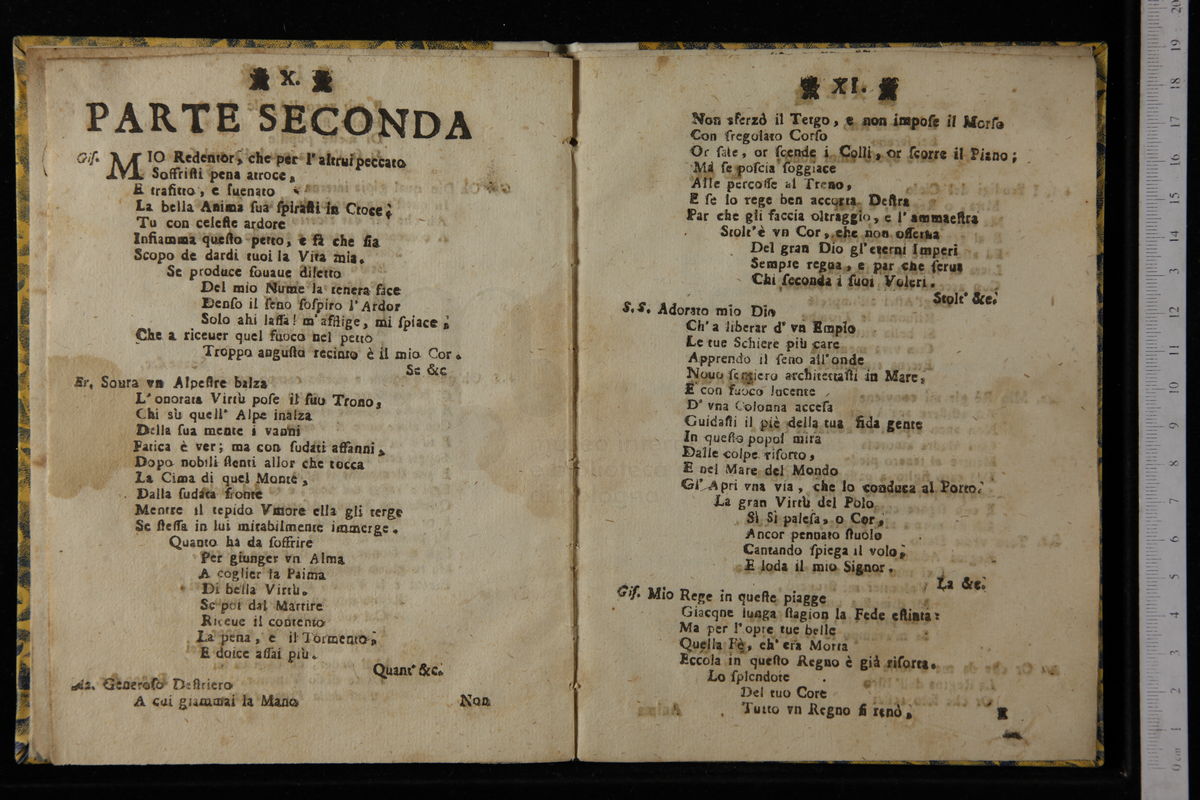 X.
PARTE SECONDA
Giſ. MIO Redentor, che per l'altrui peccato
Soffriſti pena atroce,
E trafitto, e ſuenato
La bella Anima ſua ſpiraſti in Croce;
Tu con celeſte ardore
Infiamma queſto petto, e fà che ſia
Scopo de dardi tuoi la Vita mia.
Se produce ſouaue diletto
Del mio Nume la tenera face
Denſo il ſeno ſoſpiro l'Ardor
Solo ahi laſſa! m'afflige, mi ſpiace;
Che a riceuer quel fuoco nel petto
Troppo anguſto recinto è il mio Cor.
Se &c
Er. Soura vn Alpeſtre balza
L'onorata Virtù poſe il ſuo Trono,
Chi sù quell' Alpe inalza
Della ſua mente i vanni
Fatica è ver; ma con ſudati affanni,
Dopo nobili ſtenti allor che tocca
La Cima di quel Monte,
Dalla ſudata fronte
Mentre il tepido Vmore ella gli terge
Se ſteſſa in lui mirabilmente immerge.
Quanto ha da ſoffrire
Per giunger vn Alma
A coglier la Palma
Di bella Virtù.
Se poi dal Martire
Riceue il contento
La pena, e il Tormento,
E dolce aſſai più.
Quant' &c.
Az. Generoſo Deſtriero
A cui giammai la Mano
Non
XI.
Non sferzò il Tergo, e non impoſe il Morſo
Con ſregolato Corſo
Or ſale, or ſcende i Colli, or ſcorre il Piano;
Ma ſe poſcia ſoggiace
Alle percoſſe al Freno,
E ſe lo rege ben accorta Deſtra
Par che gli faccia oltraggio, e l'ammaeſtra
Stolt'è vn Cor, che non oſſerua
Del gran Dio gl'eterni Imperi
Sempre regna, e par che ſerua
Chi ſeconda i ſuoi Voleri.
Stolt' &c.
S.S. Adorato mio Dio
Ch'a liberar d'vn Empio
Le tue Schiere più care
Apprendo il ſeno all'onde
Nouo ſentiero architettaſti in Mare,
E con fuoco lucente
D'vna Colonna acceſa
Guidaſti il piè della tua fida gente
In queſto popol mira
Dalle colpe riſorto,
E nel Mare del Mondo
Gl'Apri vna via, che lo conduca al Porto.
La gran Virtù del Polo
Sì Sì paleſa, o Cor,
Ancor pennato ſtuolo
Cantando ſpiega il volo,
E loda il mio Signor.
La &c.
Giſ. Mio Rege in queſte piagge
Giacque lunga ſtagion la Fede eſtinta:
Ma per l'opre tue belle
Quella Fè, ch'era Morta
Eccola in queſto Regno è già riſorta.
Lo ſplendore
Del tuo Core
Tutto vn Regno ſi renò,